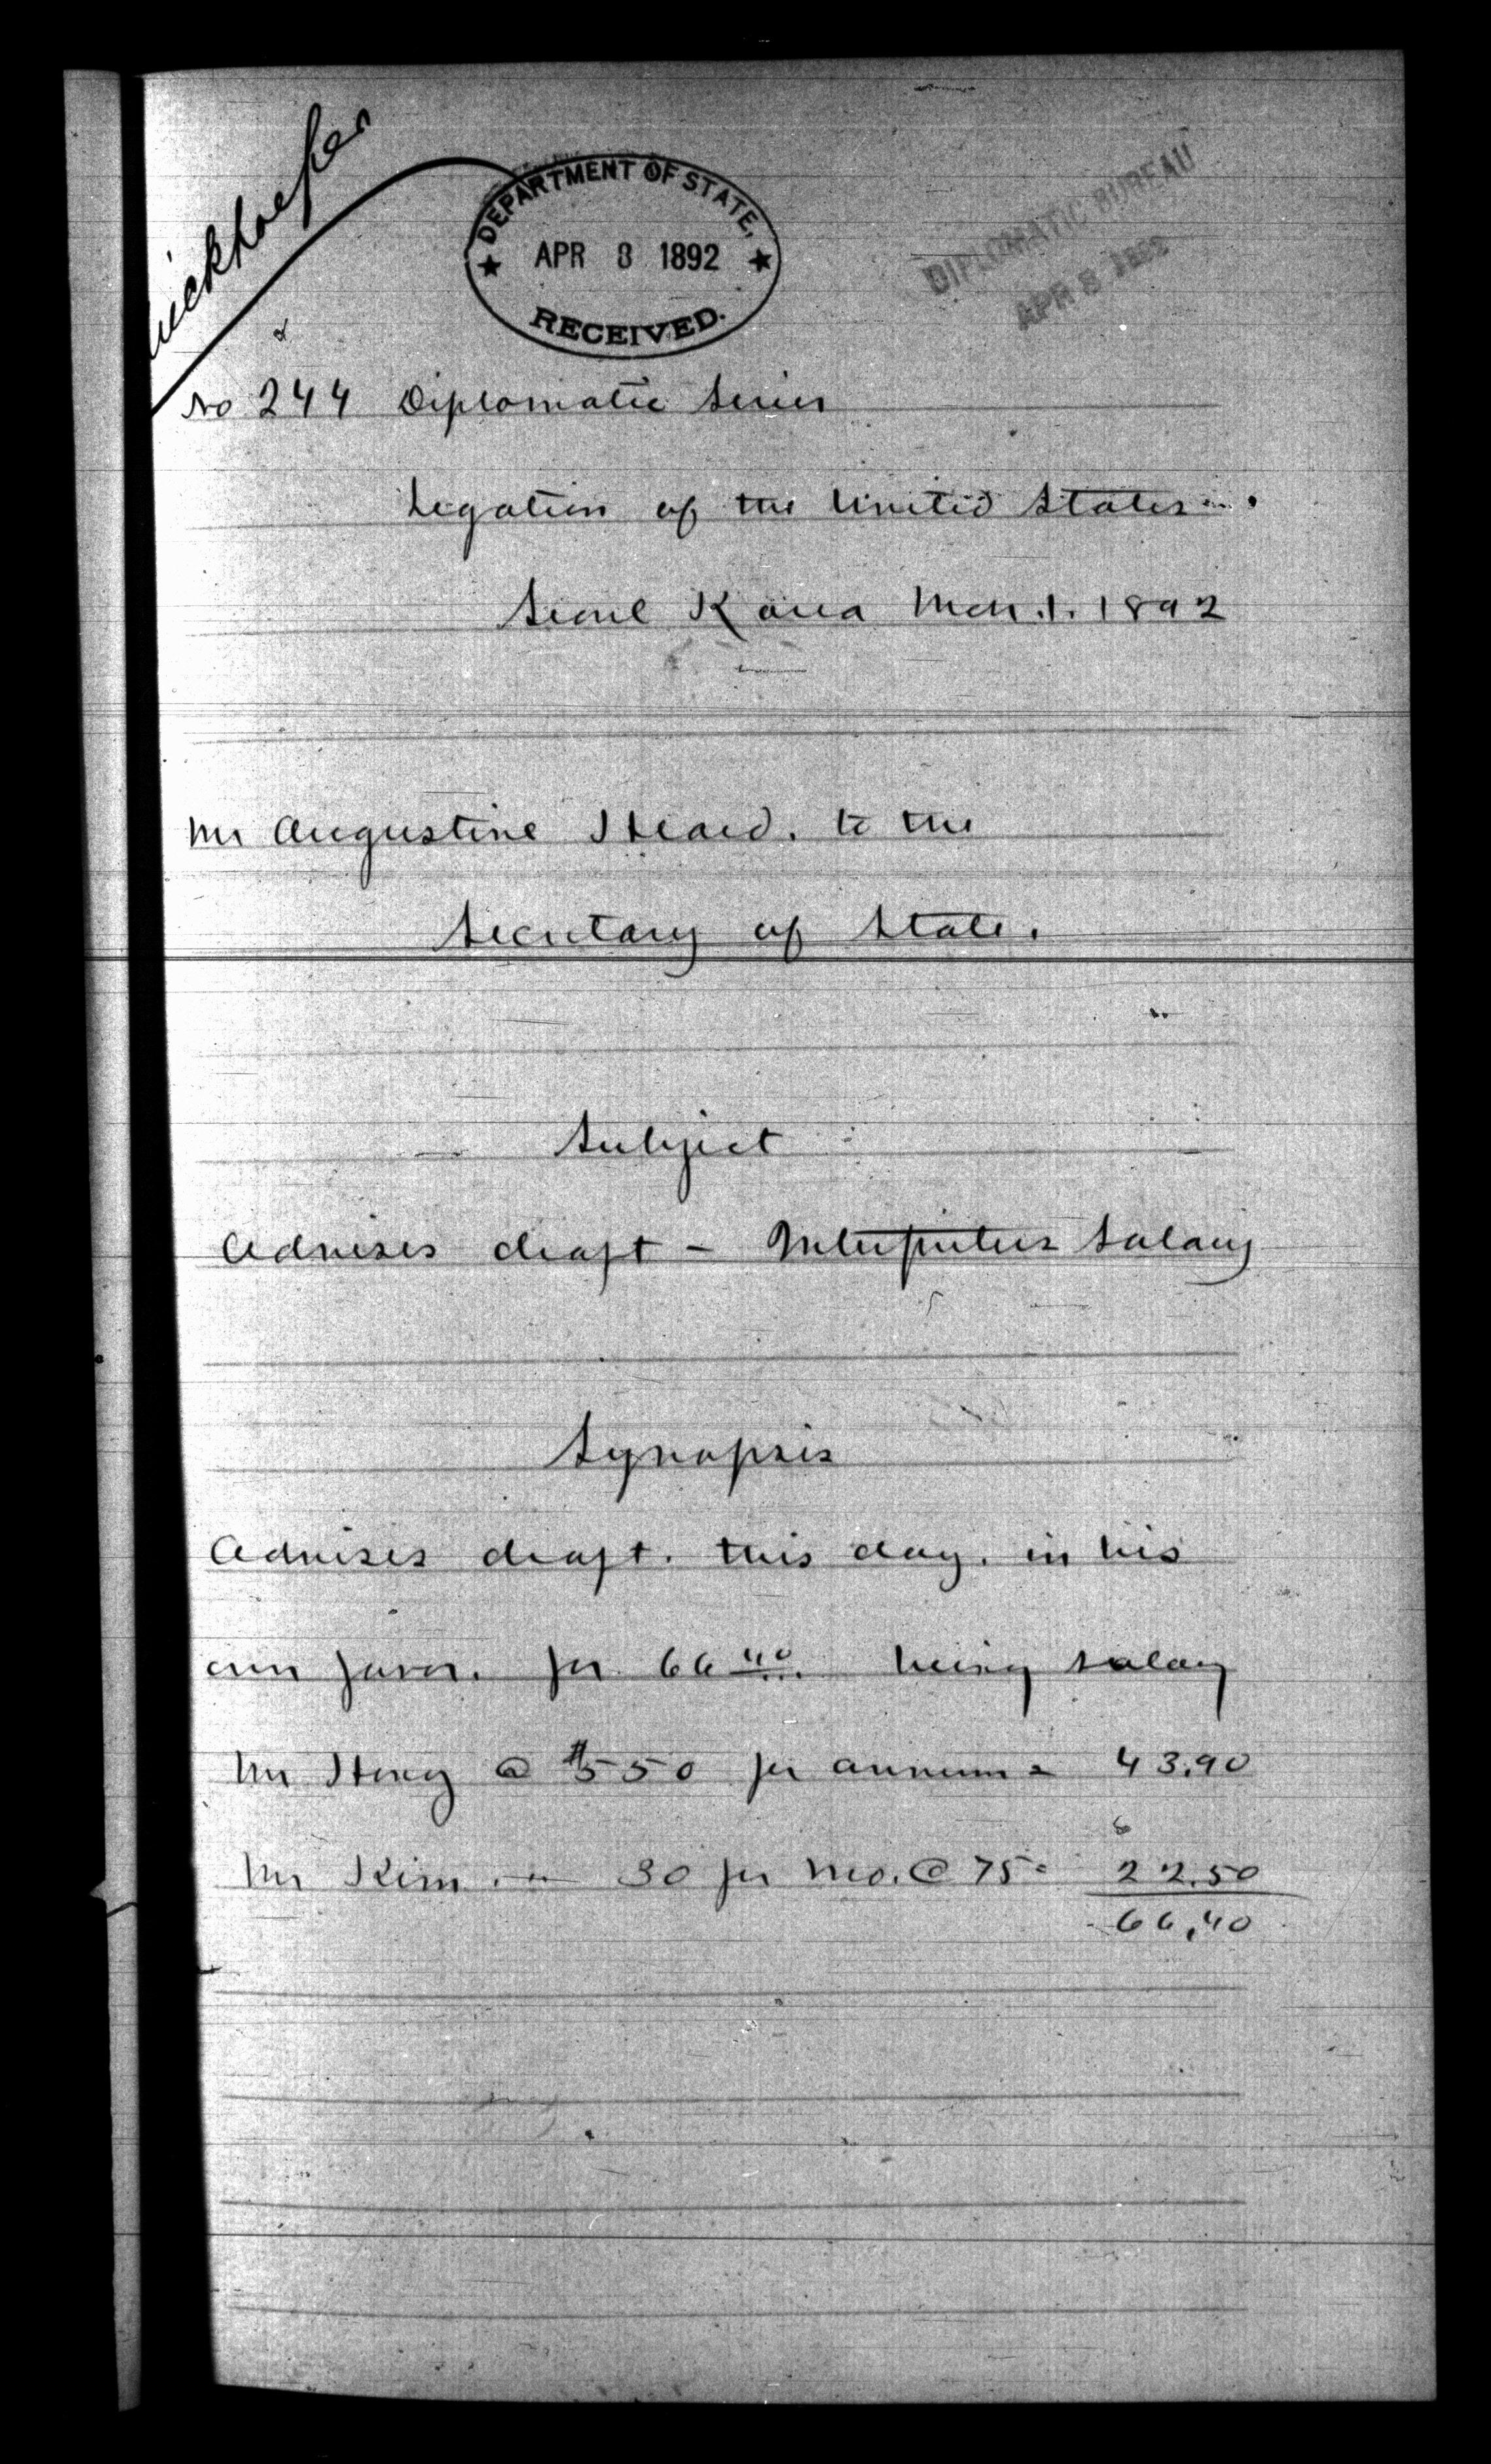 DEPARTMENT OF STATE,
APR 8 1892
RECEIVED.
DIPLOMATIC BUREAU
APR 8 1892
No 244 Diplomatic Series
Legation of the United States
Seoul Korea Mch. 1. 1892
Mr Augustine Heard. to the
Secretary of State.
Subject
Advises draft - Interpreters Salary
Synopsis
Advises draft. this day. in his
own favor. for 66 40. being salary
Mr Hong @ $550 per annum = 43.90
Mr Kim. " 30 per mo. @ 75 = 22.50
66.40